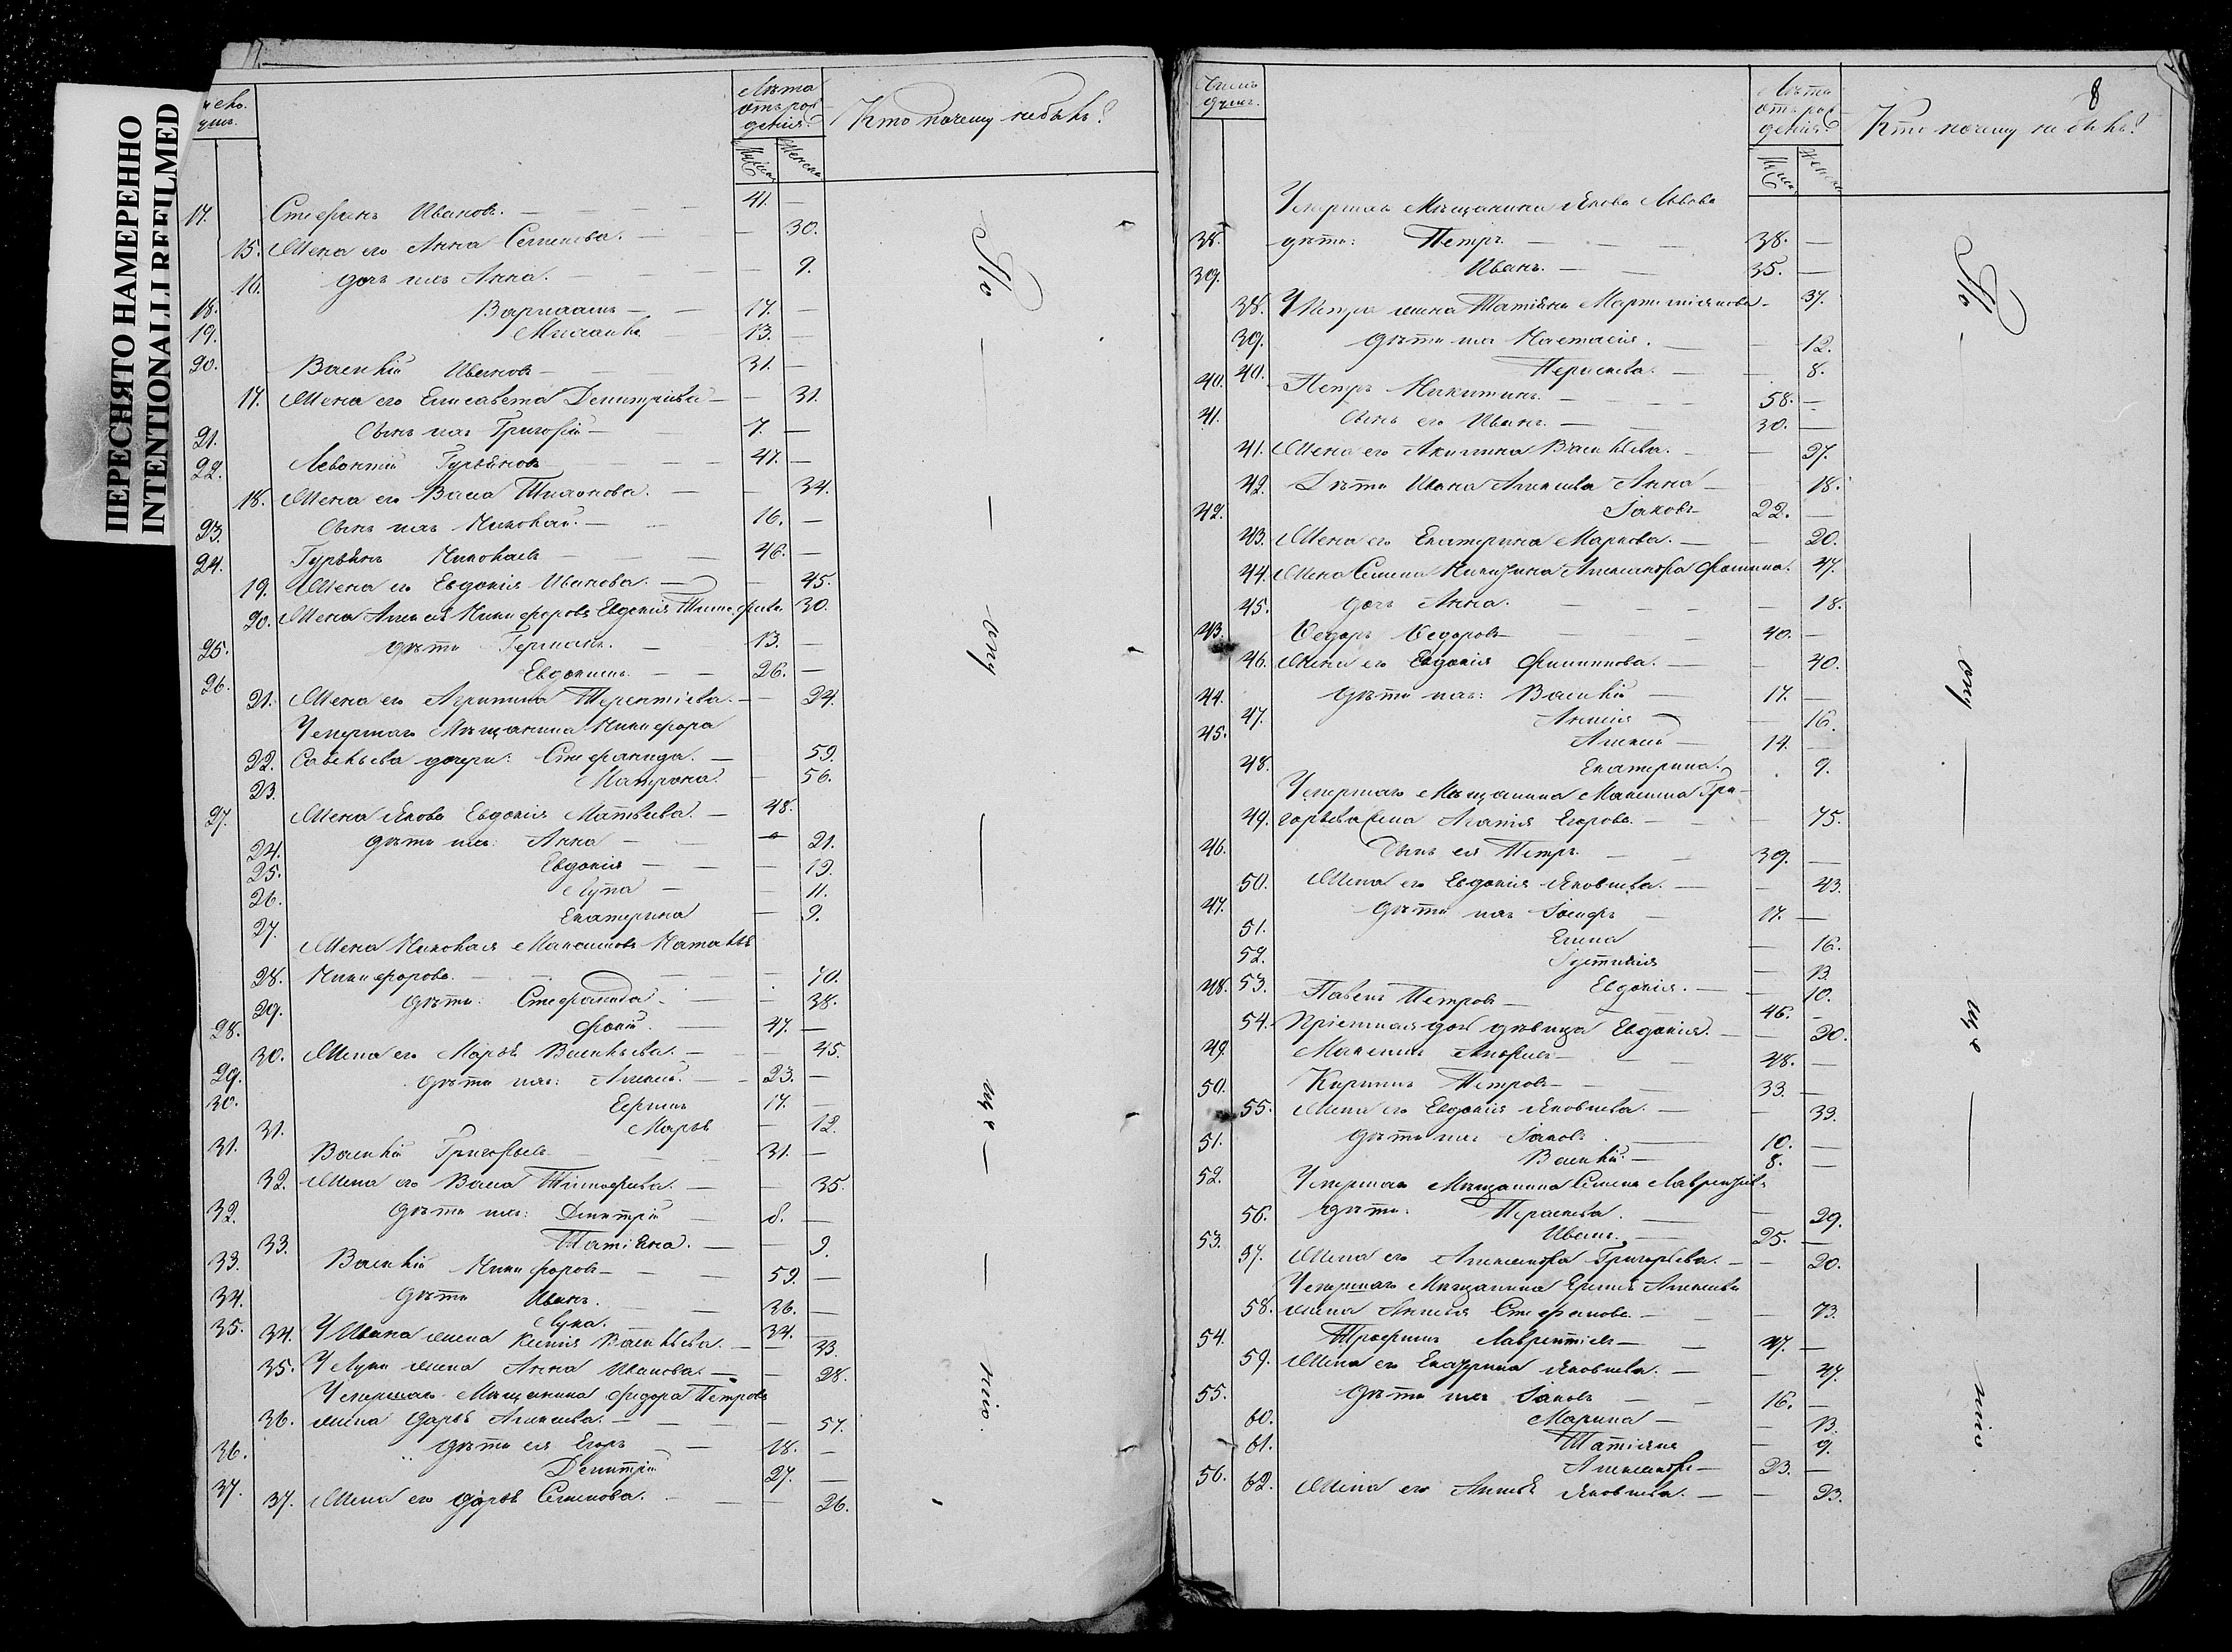 ПЕРЕСНЯТО НАМЕРЕННО
INTENTIONALLI REFILMED
Лѣта
отъ рож
денія
Кто почему не былъ?
17. Стефанъ Ивановъ. — 41. —
15. Жена его Анна Семенова. — — 30.
16. дочь ихъ Анна. — — 9.
18. Варлаамъ — 17. —
19. Михаилъ 13. —
20. Василій Ивановъ — 31. —
17. Жена его Елисавета Димитріева — — 31.
21. Сынъ ихъ Григорій — 7. —
22. Левонтій Гурьяновъ — 47. —
18. Жена его Васа Тихонова. — — 34.
23. Сынъ ихъ Николай. — 16. —
24. Гурьянъ Николаевъ — 46. —
19. Жена его Евдокія Иванова. — — 45.
20. Жена Алексѣя Никифорова Евдокія Тимофеева 30.
25. дѣти Германъ. — 13. —
26. Евдокимъ. — 26. —
21. Жена его Агрипина Терентіева. — — 24.
Умершаго Мѣщанина Никифора
22. Савельева дочери: Стефанида. — 59.
23. Матрона. — 56.
27. Жена Якова Евдокія Матвѣева. — 48.
24. дѣти ихъ: Анна — 21.
25. Евдокія — — 19.
26. — 11.
27. Екатерина — 9.
Жена Николая Максимова Наталья
28. Никифорова. — 70.
29. дѣти: Стефанида. — 38.
28. Фокій. — 47. —
30. Жена его Марѳа Васильева. — — 45.
29. дѣти ихъ: Алексѣй. — 23. —
30. 17. —
31. Марѳа — 12.
31. Василій Григорьевъ — 31. —
32. Жена его Васа Тимофеева. — — 35.
32. дѣти ихъ: Димитрій — 8. —
33. Татіяна. — — 9.
33. Василій Никифоровъ — 59. —
34. дѣти Иванъ. — 36. —
35. Лука. — 34. —
34. У Ивана жена Ксенія Васильева. — — 33.
35. У Луки жена Анна Иванова. — — 28.
Умершаго Мѣщанина Фидора Петрова
36. жена Дарья Алексѣева. — — 57.
36. дѣти ея Егоръ — 18. —
37. Димитрій 27. —
37. Жена его Дарья Семенова. — — 26.
По — оку — ще — нію.
8
Число
душъ.
Лѣта
отъ рож
денія
Кто почему не былъ?
Умершаго Мѣщанина Якова Львова
38. дѣти: Петръ. — 38. —
39. Иванъ. — 35. —
38. У Петра жена Татіяна — 37.
39. дѣти ихъ Настасія. — — 12.
40. Параскева. — — 8.
40. Петръ Никитинъ. — 58. —
41. Сынъ его Иванъ. — 30. —
41. Жена его Акилина Васильева. — — 27.
42. Дѣти Ивана Алексѣева Анна — 18.
42. Іаковъ — 22. —
43. Жена его Екатерина Маркова. — — 20.
44. Жена Семена Никитина Александра Фомина. 47.
45. дочь Анна. — — 18.
43. Ѳедоръ Ѳедоровъ — 40. —
46. Жена его Евдокія Филиппова. — — 40.
44. дѣти ихъ: Василій — 17. —
47. — 16.
45. Алексѣй — 14. —
48. Екатерина. 9.
Умершаго Мѣщанина Максима Гри-
49. горьева жена Агапія Егорова. — — 75.
46. Сынъ ея Петръ. — 39. —
50. Жена его Евдокія Яковлева. — — 43.
47. дѣти ихъ Іосифъ — 17. —
51. Елена — 16.
52. — 13.
53. Евдокія. — — 10.
48. Павелъ Петровъ — 46. —
54. Пріемная дочь дѣвица Евдокія. — — 20.
49. Максимъ — 48. —
50. Кирилъ Петровъ — 33. —
55. Жена его Евдокія Яковлева. — — 33.
51. дѣти ихъ Іаковъ. — 10. —
52. Василій. — 8. —
Умершаго Мѣщанина Семена Лаврентіева
56. дѣти: Параскева. — — 29.
53. Иванъ. — 25. —
57. Жена его Александра Григорьева. — — 20.
Умершаго Мѣщанина Алексѣева
58. жена Стефанова. — — 73.
54. Трофимъ Лаврентіевъ — 47. —
59. Жена его Екатерина Яковлева. — — 47.
55. дѣти ихъ Іаковъ — 16. —
60. Марина — — 13.
61. Татіяна — 9.
56. Александръ — 23. —
62. Жена его Яковлева. — — 23.
По — оку — ще — нію.